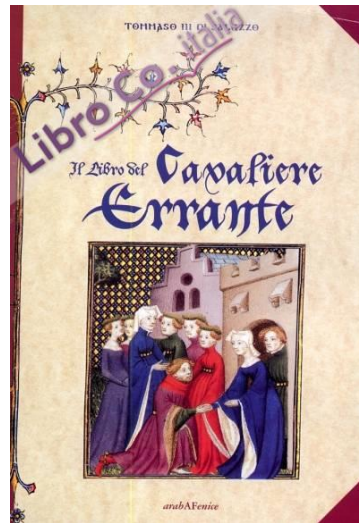 TOMMASO III DI SALUZZO
Libro Co. italia
Il Libro del Cavaliere
Errante
arabAFenice